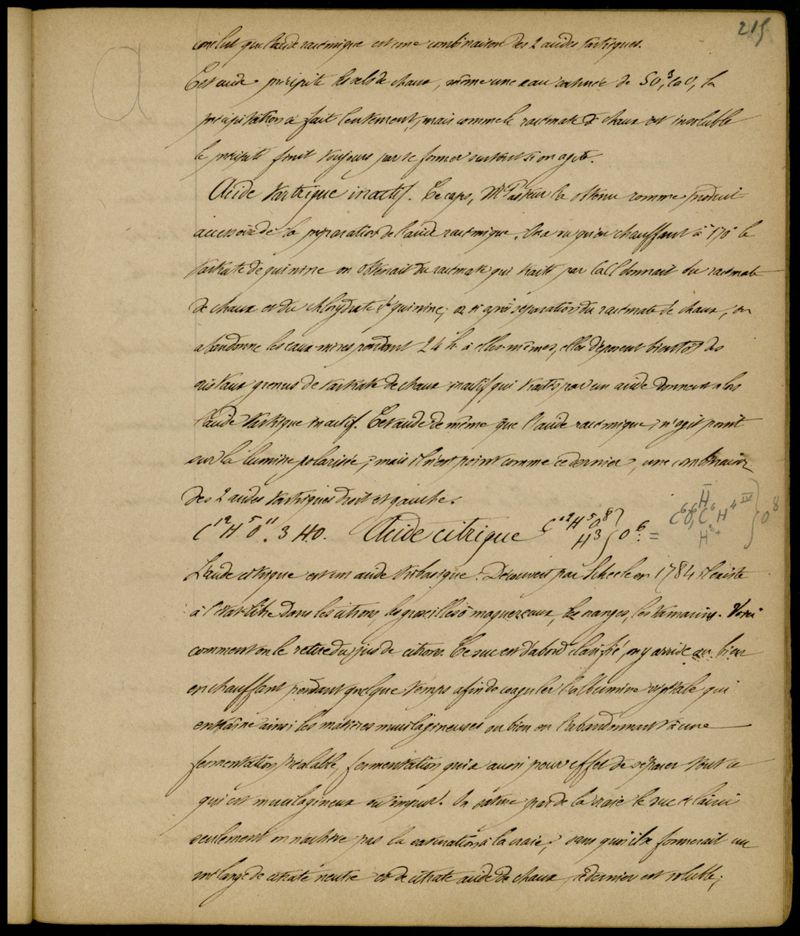 215
conclut que l'acide racémique est une combinaison des 2 acides tartriques.
Cet acide précipite les sels de chaux, même une eau saturée de SO³, CaO, la
précipitation se fait lentement, mais comme le racémate de chaux est insoluble
le précipité finit toujours par se former surtout si on agite.
Acide tartrique inactif. Ce corps, Mr Pasteur l'a obtenu comme produit
accessoire de la préparation de l'acide racémique. On a vu qu'en chauffant à 170° le
tartrate de quinine on obtenait du racémate qui traité par CaCl donnait du racémate
de chaux et du chlorhydrate de quinine; or si après séparation du racémate de chaux, on
abandonne les eaux mères pendant 24 h à elles mêmes, elles déposent bientôt des
cristaux grenus de tartrate de chaux inactif qui traités par un acide donnent alors
l'acide tartrique inactif. Cet acide de même que l'acide racémique, n'agit point
sur la lumière polarisée; mais il n'est point comme ce dernier, une combinaison
des 2 acides tartriques droit et gauche.
C¹²H⁵O¹¹. 3 HO. Acide citrique C¹²H⁵O⁸ H³ } O⁶. =
L'acide citrique est un acide tribasique. Découvert par Scheele en 1784 il existe
à l'état libre dans les citrons, les groseilles à maquereaux, les oranges, les tamarins. Voici
comment on le retire du jus de citrons. Ce suc est d'abord clarifié, on y arrive ou bien
en chauffant pendant quelque temps afin de coaguler l'albumine végétale qui
entraîne ainsi les matières mucilagineuses ou bien en l'abandonnant à une
fermentation préalable, fermentation qui a aussi pour effet de séparer tout ce
qui est mucilagineux ou impur. On sature par de la craie le suc éclairci
seulement on n'achève pas la saturation à la craie, sans quoi il se formerait un
mélange de citrate neutre et de citrate acide de chaux, ce dernier est soluble;